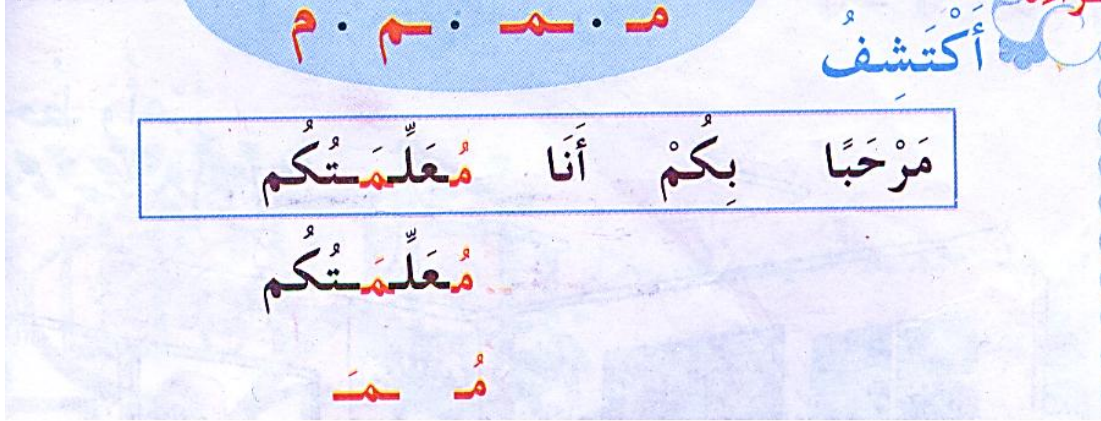 مـ . ـمـ . ـم . م
أَكْتَشِفُ
مَرْحَبًا بِكُمْ أَنَا مُعَلِّمَتُكُم
مُعَلِّمَتُكُم
مُ ـمَـ